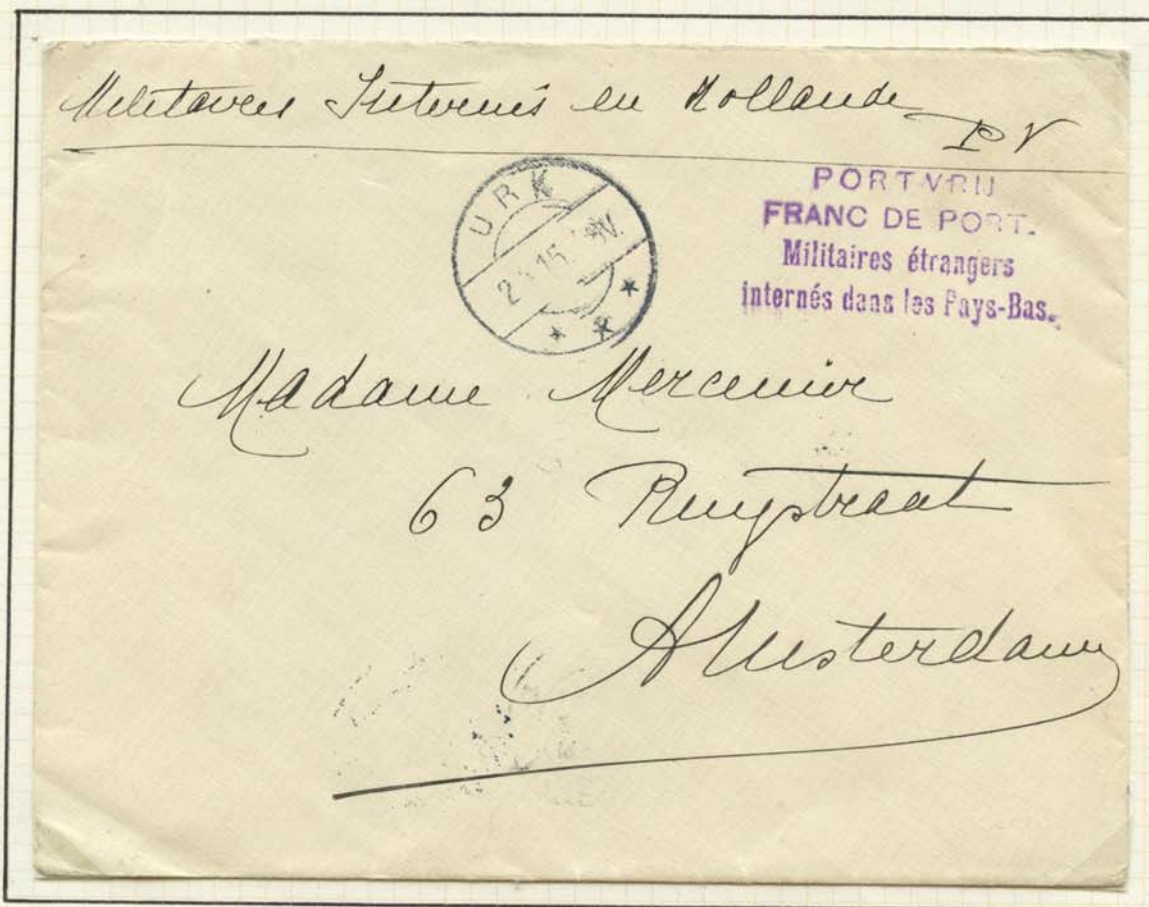 Militaires Internés en Hollande
P V
URK
15
PORTVRIJ
FRANC DE PORT.
Militaires étrangers
internés dans les Pays-Bas.
Madame Mercenier
63 Ruystraat
Amsterdam